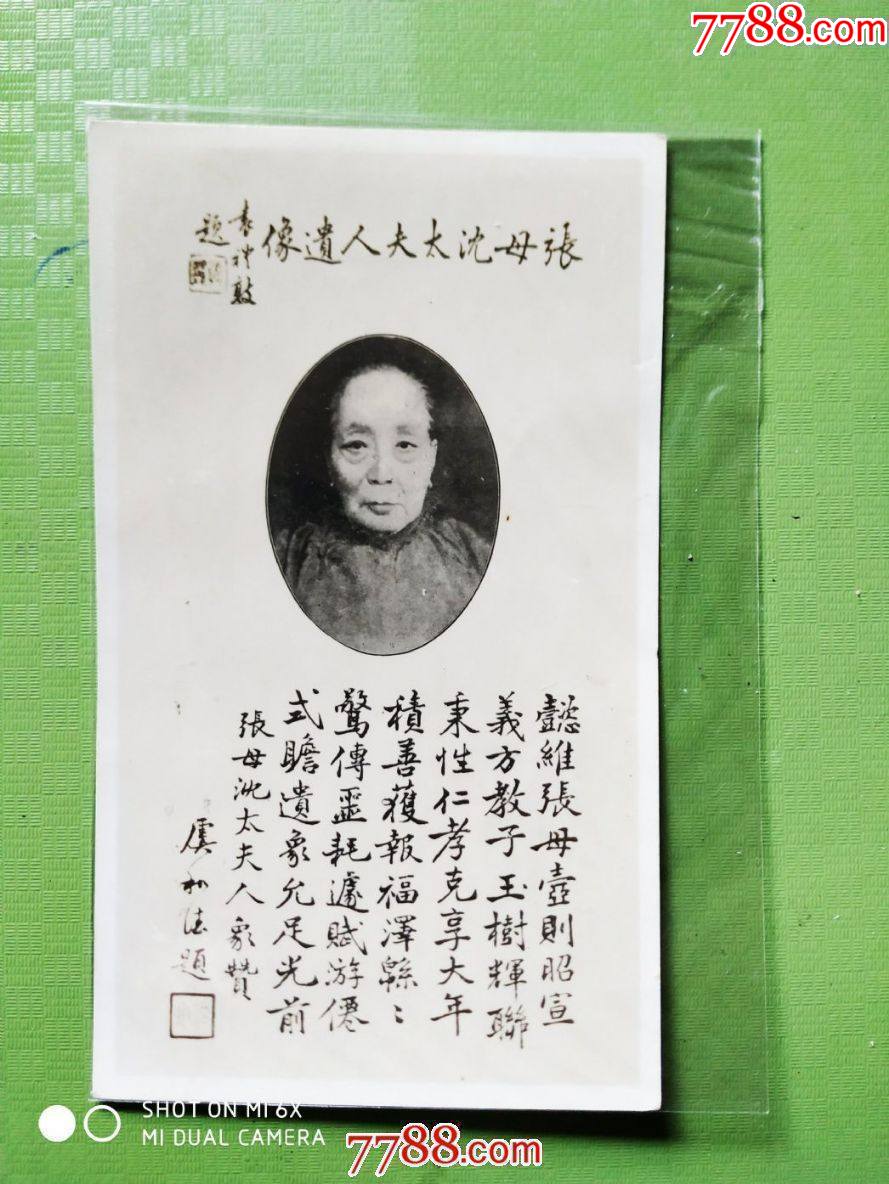 7788.com
張母沈太夫人遺像
袁礼敦
題
懿維張母壼則昭宣
義方教子玉樹輝聯
秉性仁孝克享大年
積善獲報福澤緜〻
驚傳噩耗遽賦游僊
式瞻遺象允足光前
張母沈太夫人象贊
虞和德題
SHOT ON MI 6X
MI DUAL CAMERA
7788.com